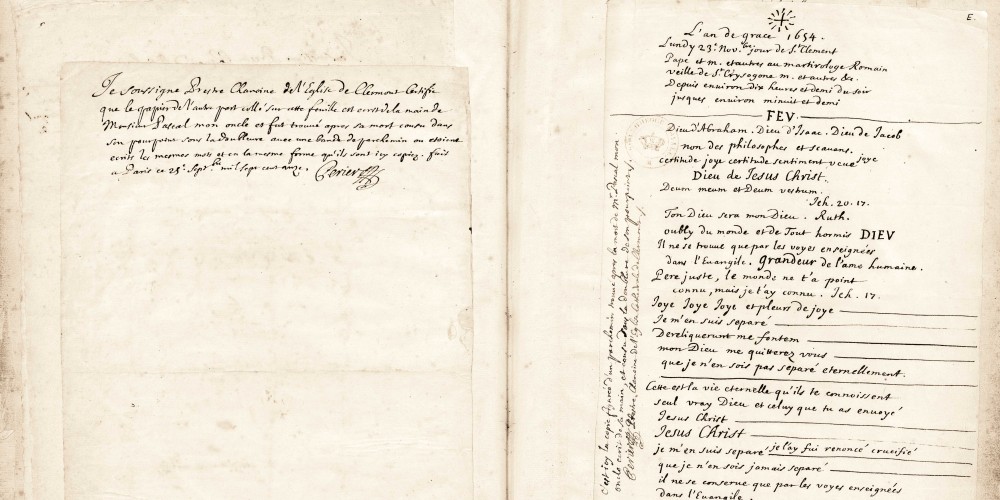 Je soussigné Prestre Chanoine de l'Eglise de Clermont Certifie
que le papier de l'autre part collé sur cette feuille est ecrit de la main de
Monsieur Pascal mon oncle et fut trouvé apres sa mort cousu dans
son pourpoint sous la doubleure avec une bande de parchemin ou estoient
ecrits les mesmes mots et en la mesme forme qu'ils sont icy copiez. Fait
a Paris ce 25e. Septbre mil sept cent onze. Perier
E.
L'an de grace 1654.
Lundy 23e. Novbre jour de St Clement
Pape et m. et autres au martirologe Romain
veille de St Crysogone m. et autres &c.
Depuis environ dix heures et demi du soir
jusques environ minuit et demi
FEV
Dieu d'Abraham. Dieu d'Isaac. Dieu de Jacob
non des philosophes et scavans.
certitude joye certitude sentiment veue joye
Dieu de Jesus Christ.
Deum meum et Deum vestrum.
Jeh. 20. 17.
Ton Dieu sera mon Dieu. Ruth.
oubly du monde et de Tout hormis DIEV
Il ne se trouve que par les voyes enseignées
dans l'Euangile. Grandeur de l'ame humaine.
Pere juste, le monde ne t'a point
connu, mais je t'ay connu. Jeh. 17.
Joye Joye Joye et pleurs de joye
Je m'en suis separé
Dereliquerunt me fontem
mon Dieu me quitterez vous
que je n'en sois pas separé eternellement.
Cette est la vie eternelle qu'ils te connoissent
seul vray Dieu et celuy que tu as envoyé
Jesus Christ
Jesus Christ
je m'en suis separé je l'ay fui renoncé crucifié
que je n'en sois jamais separé
il ne se conserve que par les voyes enseignées
dans l'Euangile.
c'est icy la copie figurée d'un parchemin trouvé apres la mort de Mr. Pascal mon
oncle ecrit de sa main, et cousu dans la doubleure de son pourpoint
Perier Prestre Chanoine de l'Eglise Cathedrale de Clermont